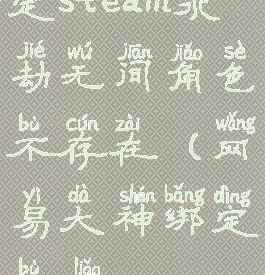 定steam家
jié wú jiān jiǎo sè
劫无间角色
bù cún zài wǎng
不存在（网
yì dà shén bǎng dìng
易大神绑定
bù liǎo